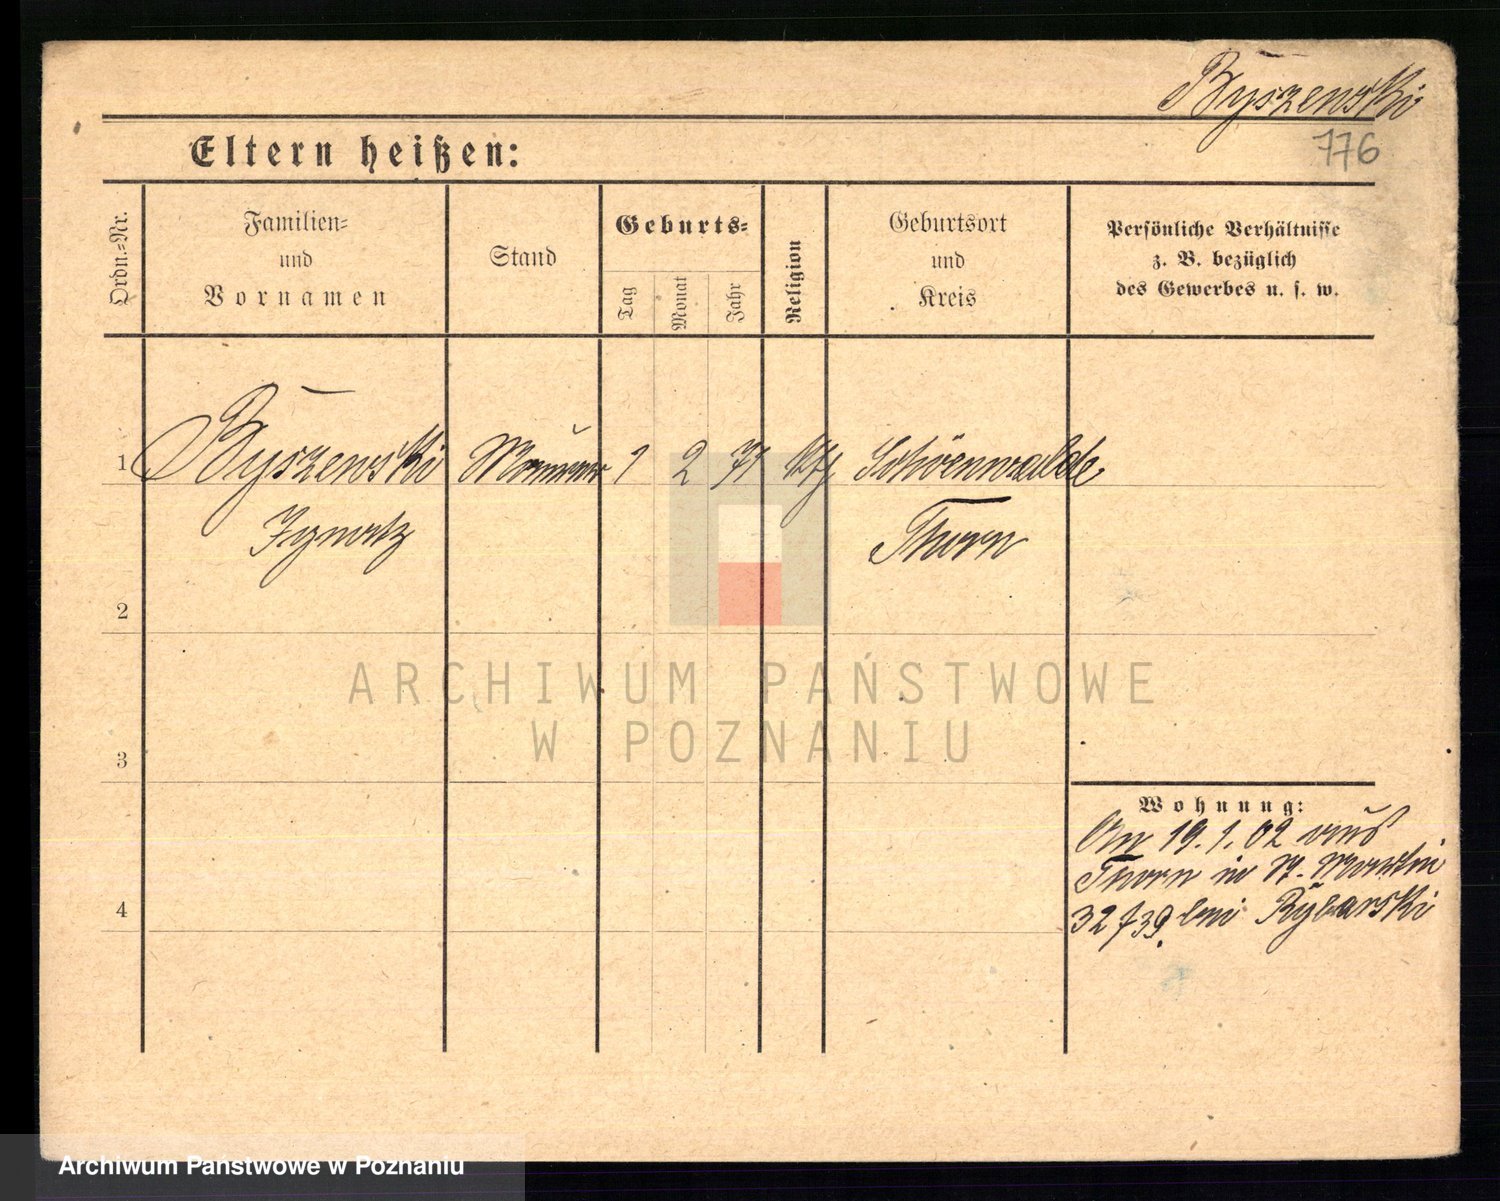 Byszewski
776
Eltern heißen:
Ordn.=Nr.
Familien=
und
Vornamen
Stand
Geburts=
Tag
Monat
Jahr
Religion
Geburtsort
und
Kreis
Persönliche Verhältnisse
z. B. bezüglich
des Gewerbes u. s. w.
1 Byszewski Maurer 1 2 71 kth Schönwalde
Ignatz Thorn
2
3
4
ARCHIWUM PAŃSTWOWE
W POZNANIU
Wohnung:
An 19.1.02 aus
Thorn in St. Martin
32 / 39 bei Rybarski
Archiwum Państwowe w Poznaniu